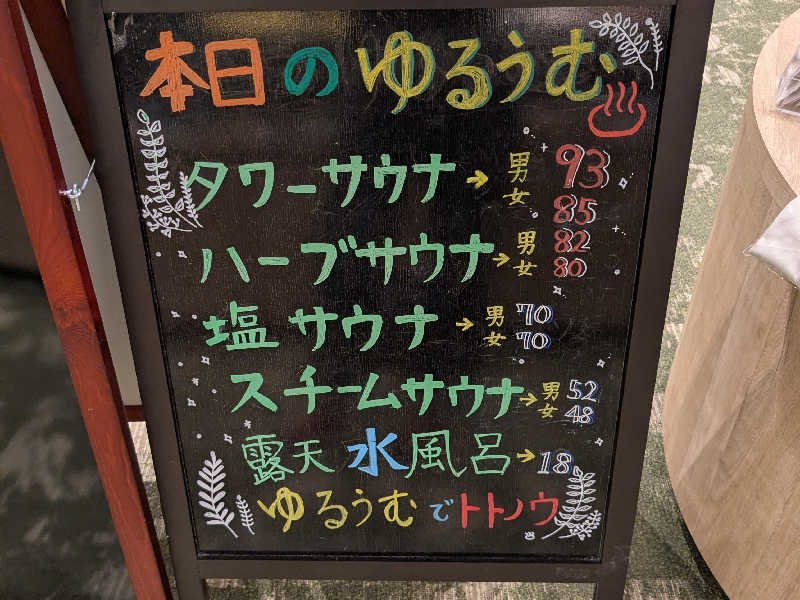 本日のゆるうむ
タワーサウナ→男 93
女 85
ハーブサウナ→男 82
女 80
塩サウナ→男 70
女 70
スチームサウナ→男 52
女 48
露天水風呂→18
ゆるうむでトトノウ